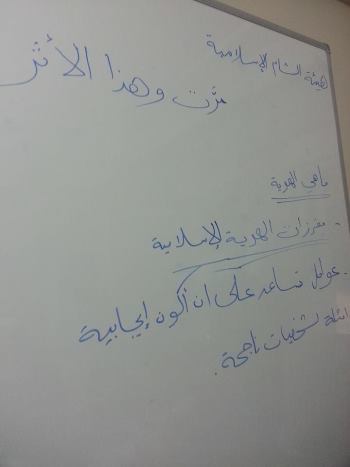 هيئة الشام الإسلامية
مرّت وهذا الأثر
ما هي الهوية
- مفرزات الهوية الإسلامية
- عوامل تساعد على ان أكون إيجابية
امثلة لشخصيات ناجحة .